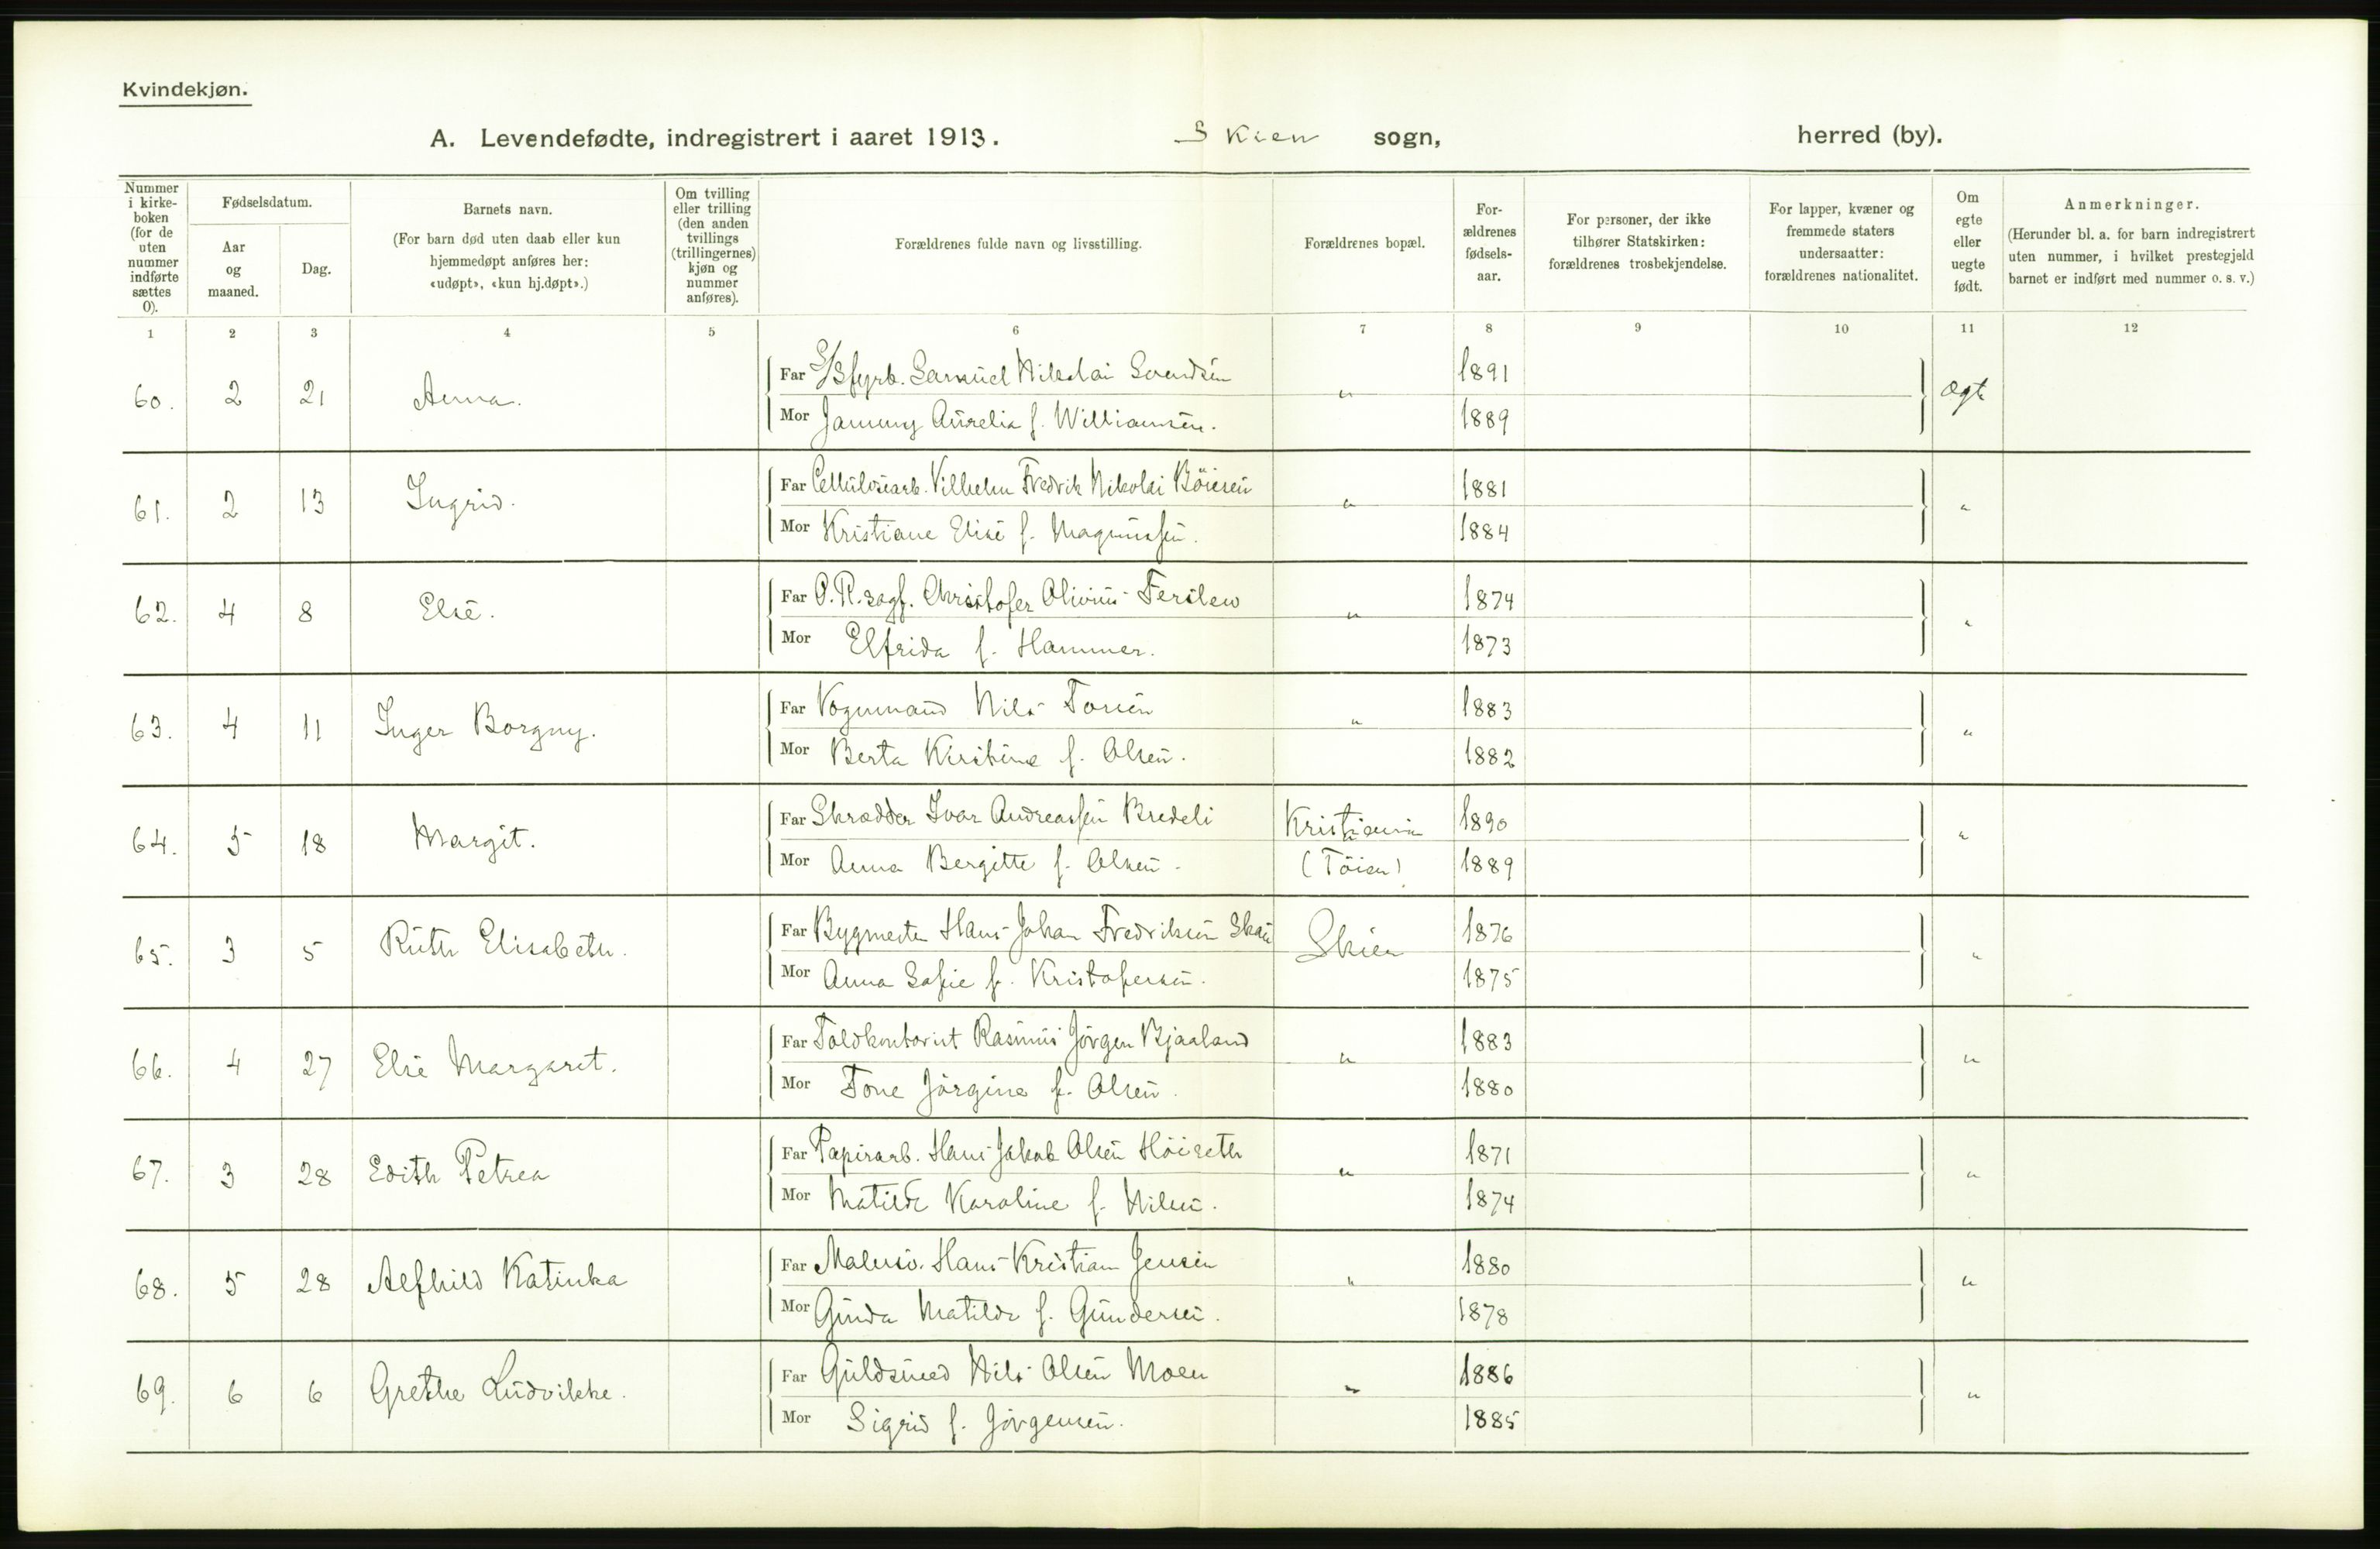 Kvindekjøn.
A. Levendefødte, indregistrert i aaret 1913. Skien sogn, herred (by).
Nummer i kirke-boken (for de uten nummer indførte sættes 0).
Fødselsdatum.
Aar og maaned.
Dag.
Barnets navn.
(For barn død uten daab eller kun hjemmedøpt anføres her: «udøpt», «kun hj.døpt».)
Om tvilling eller trilling (den anden tvillings (trillingernes) kjøn og nummer anføres).
Forældrenes fulde navn og livsstilling.
Forældrenes bopæl.
For-ældrenes fødsels-aar.
For personer, der ikke tilhører Statskirken: forældrenes trosbekjendelse.
For lapper, kvæner og fremmede staters undersaatter: forældrenes nationalitet.
Om egte eller uegte født.
Anmerkninger.
(Herunder bl. a. for barn indregistrert uten nummer, i hvilket prestegjeld barnet er indført med nummer o. s. v.)
1 2 3 4 5 6 7 8 9 10 11 12
60. 2 21 Anna. Far S/B fyrb. Samuel Nikolai Svendsen " 1891 Ægte
Mor Jammy Aurelia f. Williamsen. 1889
61. 2 13 Ingrid. Far Cellulosearb. Vilhelm Fredrik Nikolai Böiesen " 1881 "
Mor Kristiane Elise f. Magnussen. 1884
62. 4 8 Else. Far O.R.sagf. Christofer Olivius " 1874 "
Mor Elfrida f. Hammer. 1873
63. 4 11 Inger Borgny. Far Vognmand Nils " 1883 "
Mor Berta Kirstine f. Olsen. 1882
64. 5 18 Margit. Far Skrædder Ivar Andreassen Bredeli Kristiania 1890 "
Mor Anna Bergitte f. Olsen. (Töien) 1889
65. 3 5 Ruth Elisabeth. Far Bygmester Hans Johan Fredriksen Skau Skien 1876 "
Mor Anna Sofie f. Kristofersen. 1875
66. 4 27 Else Margaret. Far Toldkontorist Rasmus Jörgen Bjaaland " 1883 "
Mor Tone Jörgine f. Olsen. 1880
67. 3 28 Edith Petrea Far Papirarb. Hans Jakob Olsen Höiseth " 1871 "
Mor Matilde Karoline f. Nilsen. 1874
68. 5 28 Alfhild Katinka Far Malersv. Hans Kristian Jensen " 1880 "
Mor Ginda Matilde f. Gundersen. 1878
69. 6 6 Grethe Ludvikke. Far Guldsmed Nils Olsen Moen " 1886 "
Mor Sigrid f. Jörgensen. 1885